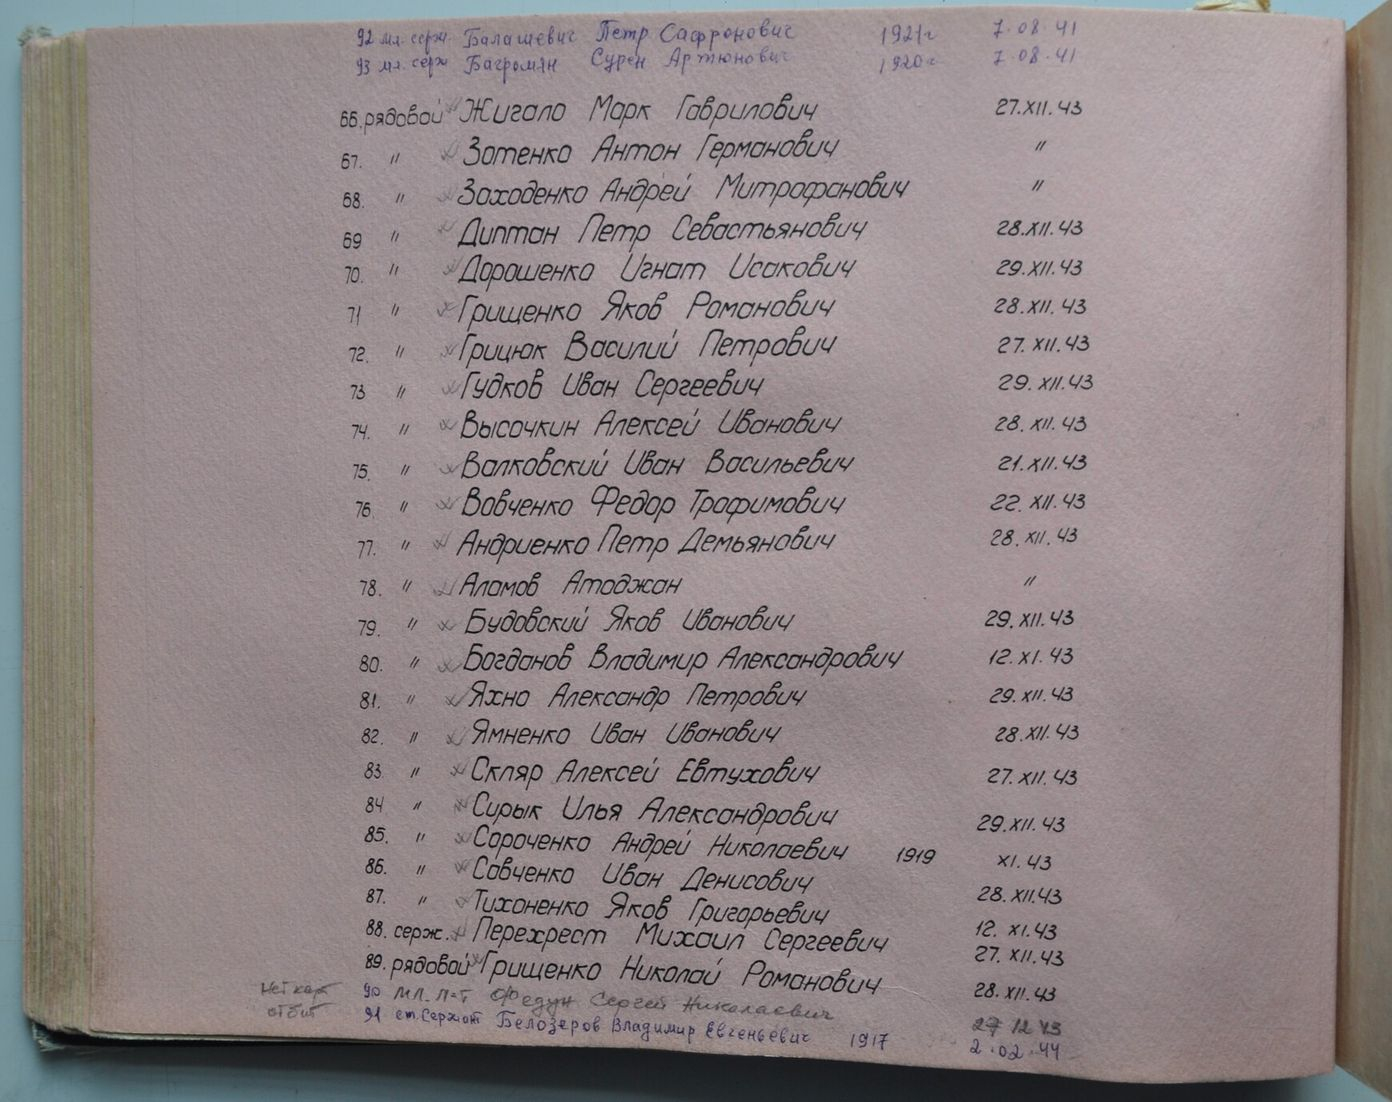 92 мл. серж. Балашевич Петр Сафронович 1921г 7.08.41
93 мл. серж Багромян Сурен Артюнович 1920г 7.08.41
66. рядовой Жигало Марк Гаврилович 27.XII.43
67. " Зотенко Антон Германович "
68. " Заходенко Андрей Митрофанович "
69 " Диптан Петр Севастьянович 28.XII.43
70. " Дорошенко Игнат Исакович 29.XII.43
71 " Грищенко Яков Романович 28.XII.43
72. " Грицюк Василий Петрович 27.XII.43
73 " Гудков Иван Сергеевич 29.XII.43
74. " Высочкин Алексей Иванович 28.XII.43
75. " Валковский Иван Васильевич 21.XII.43
76. " Вовченко Федор Трофимович 22.XII.43
77. " Андриенко Петр Демьянович 28.XII.43
78. " Аламов Атаджан "
79. " Будовский Яков Иванович 29.XII.43
80. " Богданов Владимир Александрович 12.XI.43
81. " Яхно Александр Петрович 29.XII.43
82. " Ямненко Иван Иванович 28.XII.43
83 " Скляр Алексей Евтухович 27.XII.43
84 " Сирык Илья Александрович 29.XII.43
85. " Сороченко Андрей Николаевич 1919 XI.43
86. " Савченко Иван Денисович 28.XII.43
87. " Тихоненко Яков Григорьевич 12.XI.43
88. серж. Перехрест Михаил Сергеевич 27.XII.43
89. рядовой Грищенко Николай Романович 28.XII.43
Нет карт 90 мл. л-т Федун Сергей Николаевич 27 12 43
91 ст. Сержант Белозеров Владимир Евгеньевич 1917 2.02.44